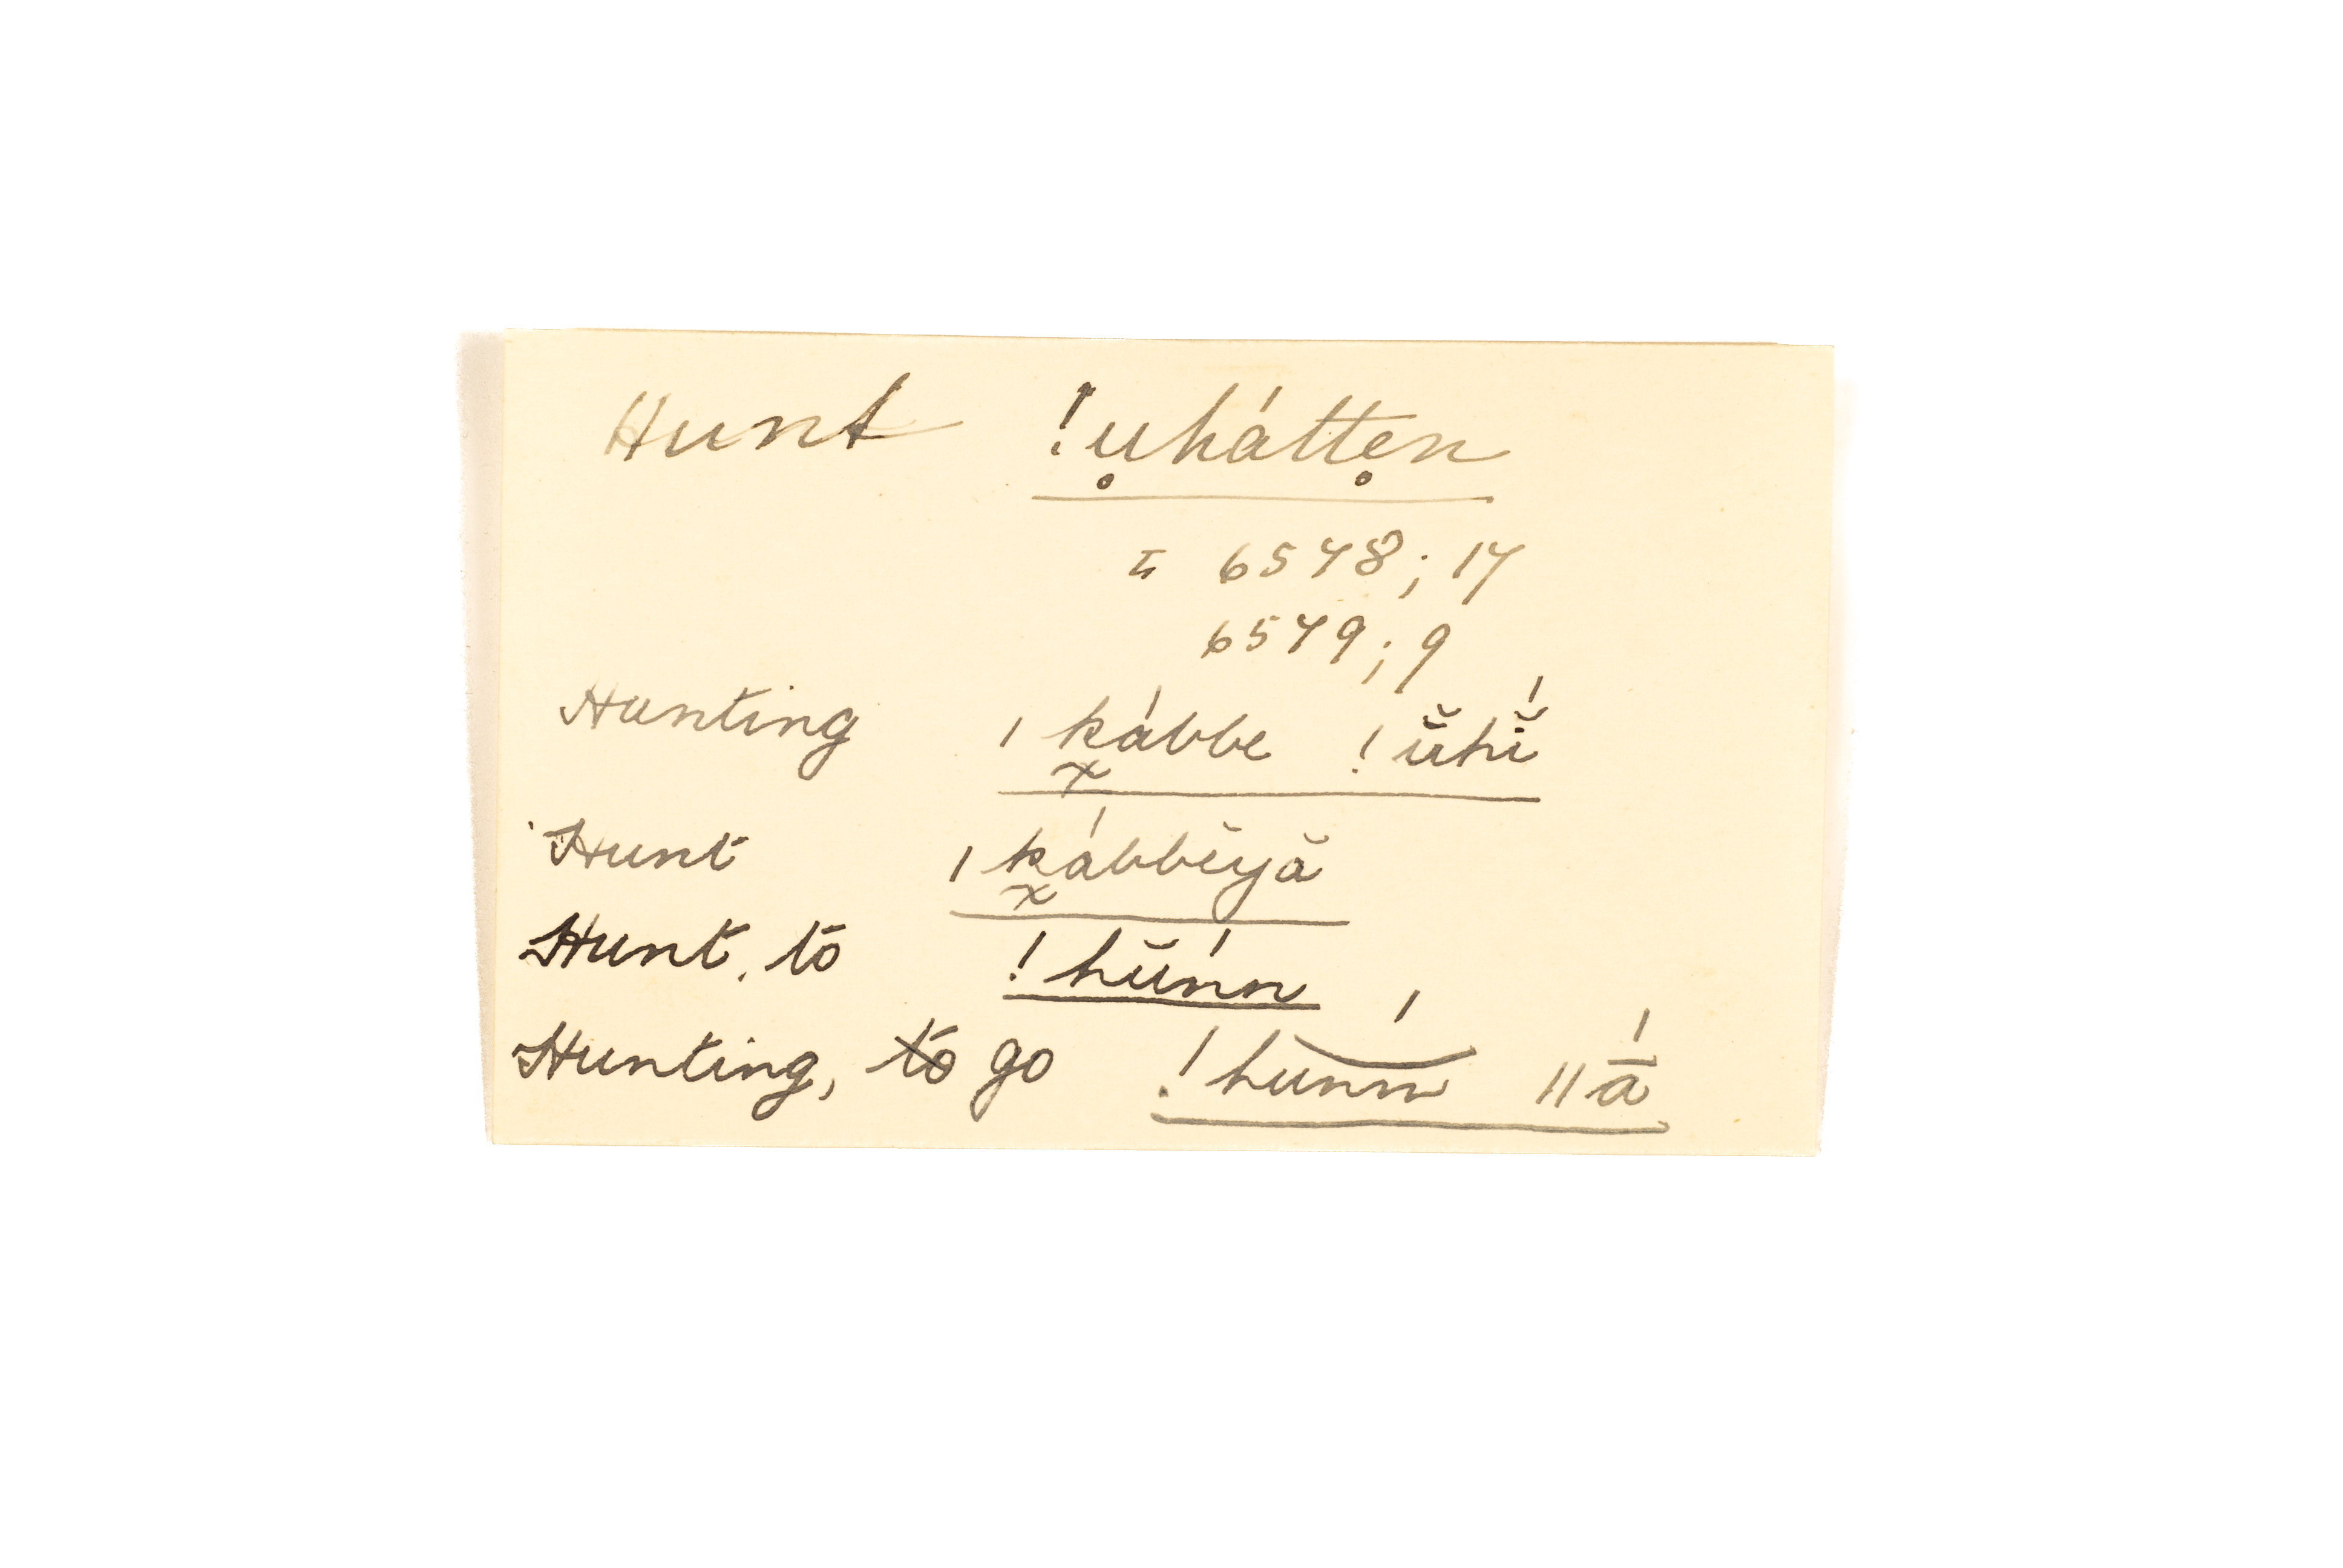 Hunt !u̥hátte̥n
= 6578; 17
6579; 9
Hunting ǀk͓ábbe !ŭhĭ̤́
Hunt ǀk͓ábbĕyă
Hunt, to !hŭńn
Hunting, to go !hunn ǁā́